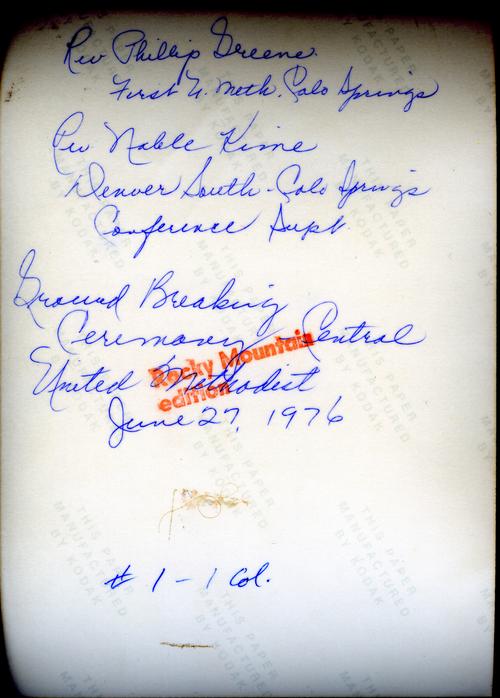 Rev Phillip Greene
First U. Meth. Colo Springs
Rev Noble Kime
Denver South - Colo Springs
Conference Supt
Ground Breaking
Ceremony Central
United Methodist
Rocky Mountain
edition
June 27, 1976
# 1 - 1 Col.
THIS PAPER
MANUFACTURED
BY KODAK